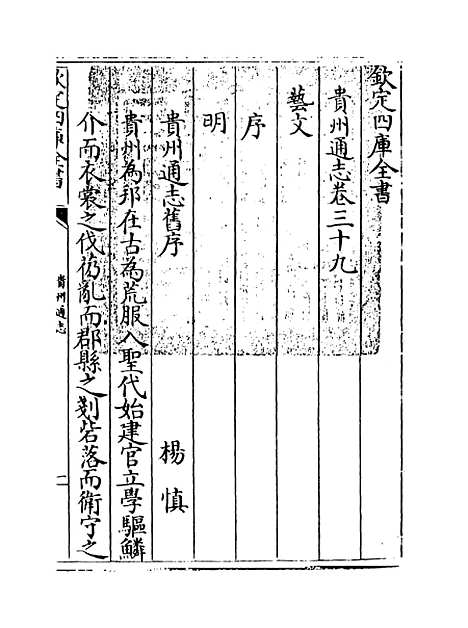 欽定四庫全書
貴州通志卷三十九
藝文
序
明
貴州通志舊序　楊慎
貴州為邦在古為荒服入聖代始建官立學驅鱗
介而衣裳之伐荒亂而郡縣之剗砦落而衛守之
欽定四庫全書
貴州通志